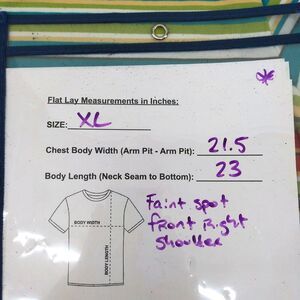 Flat Lay Measurements in Inches:
SIZE: XL
Chest Body Width (Arm Pit - Arm Pit): 21.5
Body Length (Neck Seam to Bottom): 23
Faint spot
front Right
shoulder
BODY WIDTH
BODY LENGTH